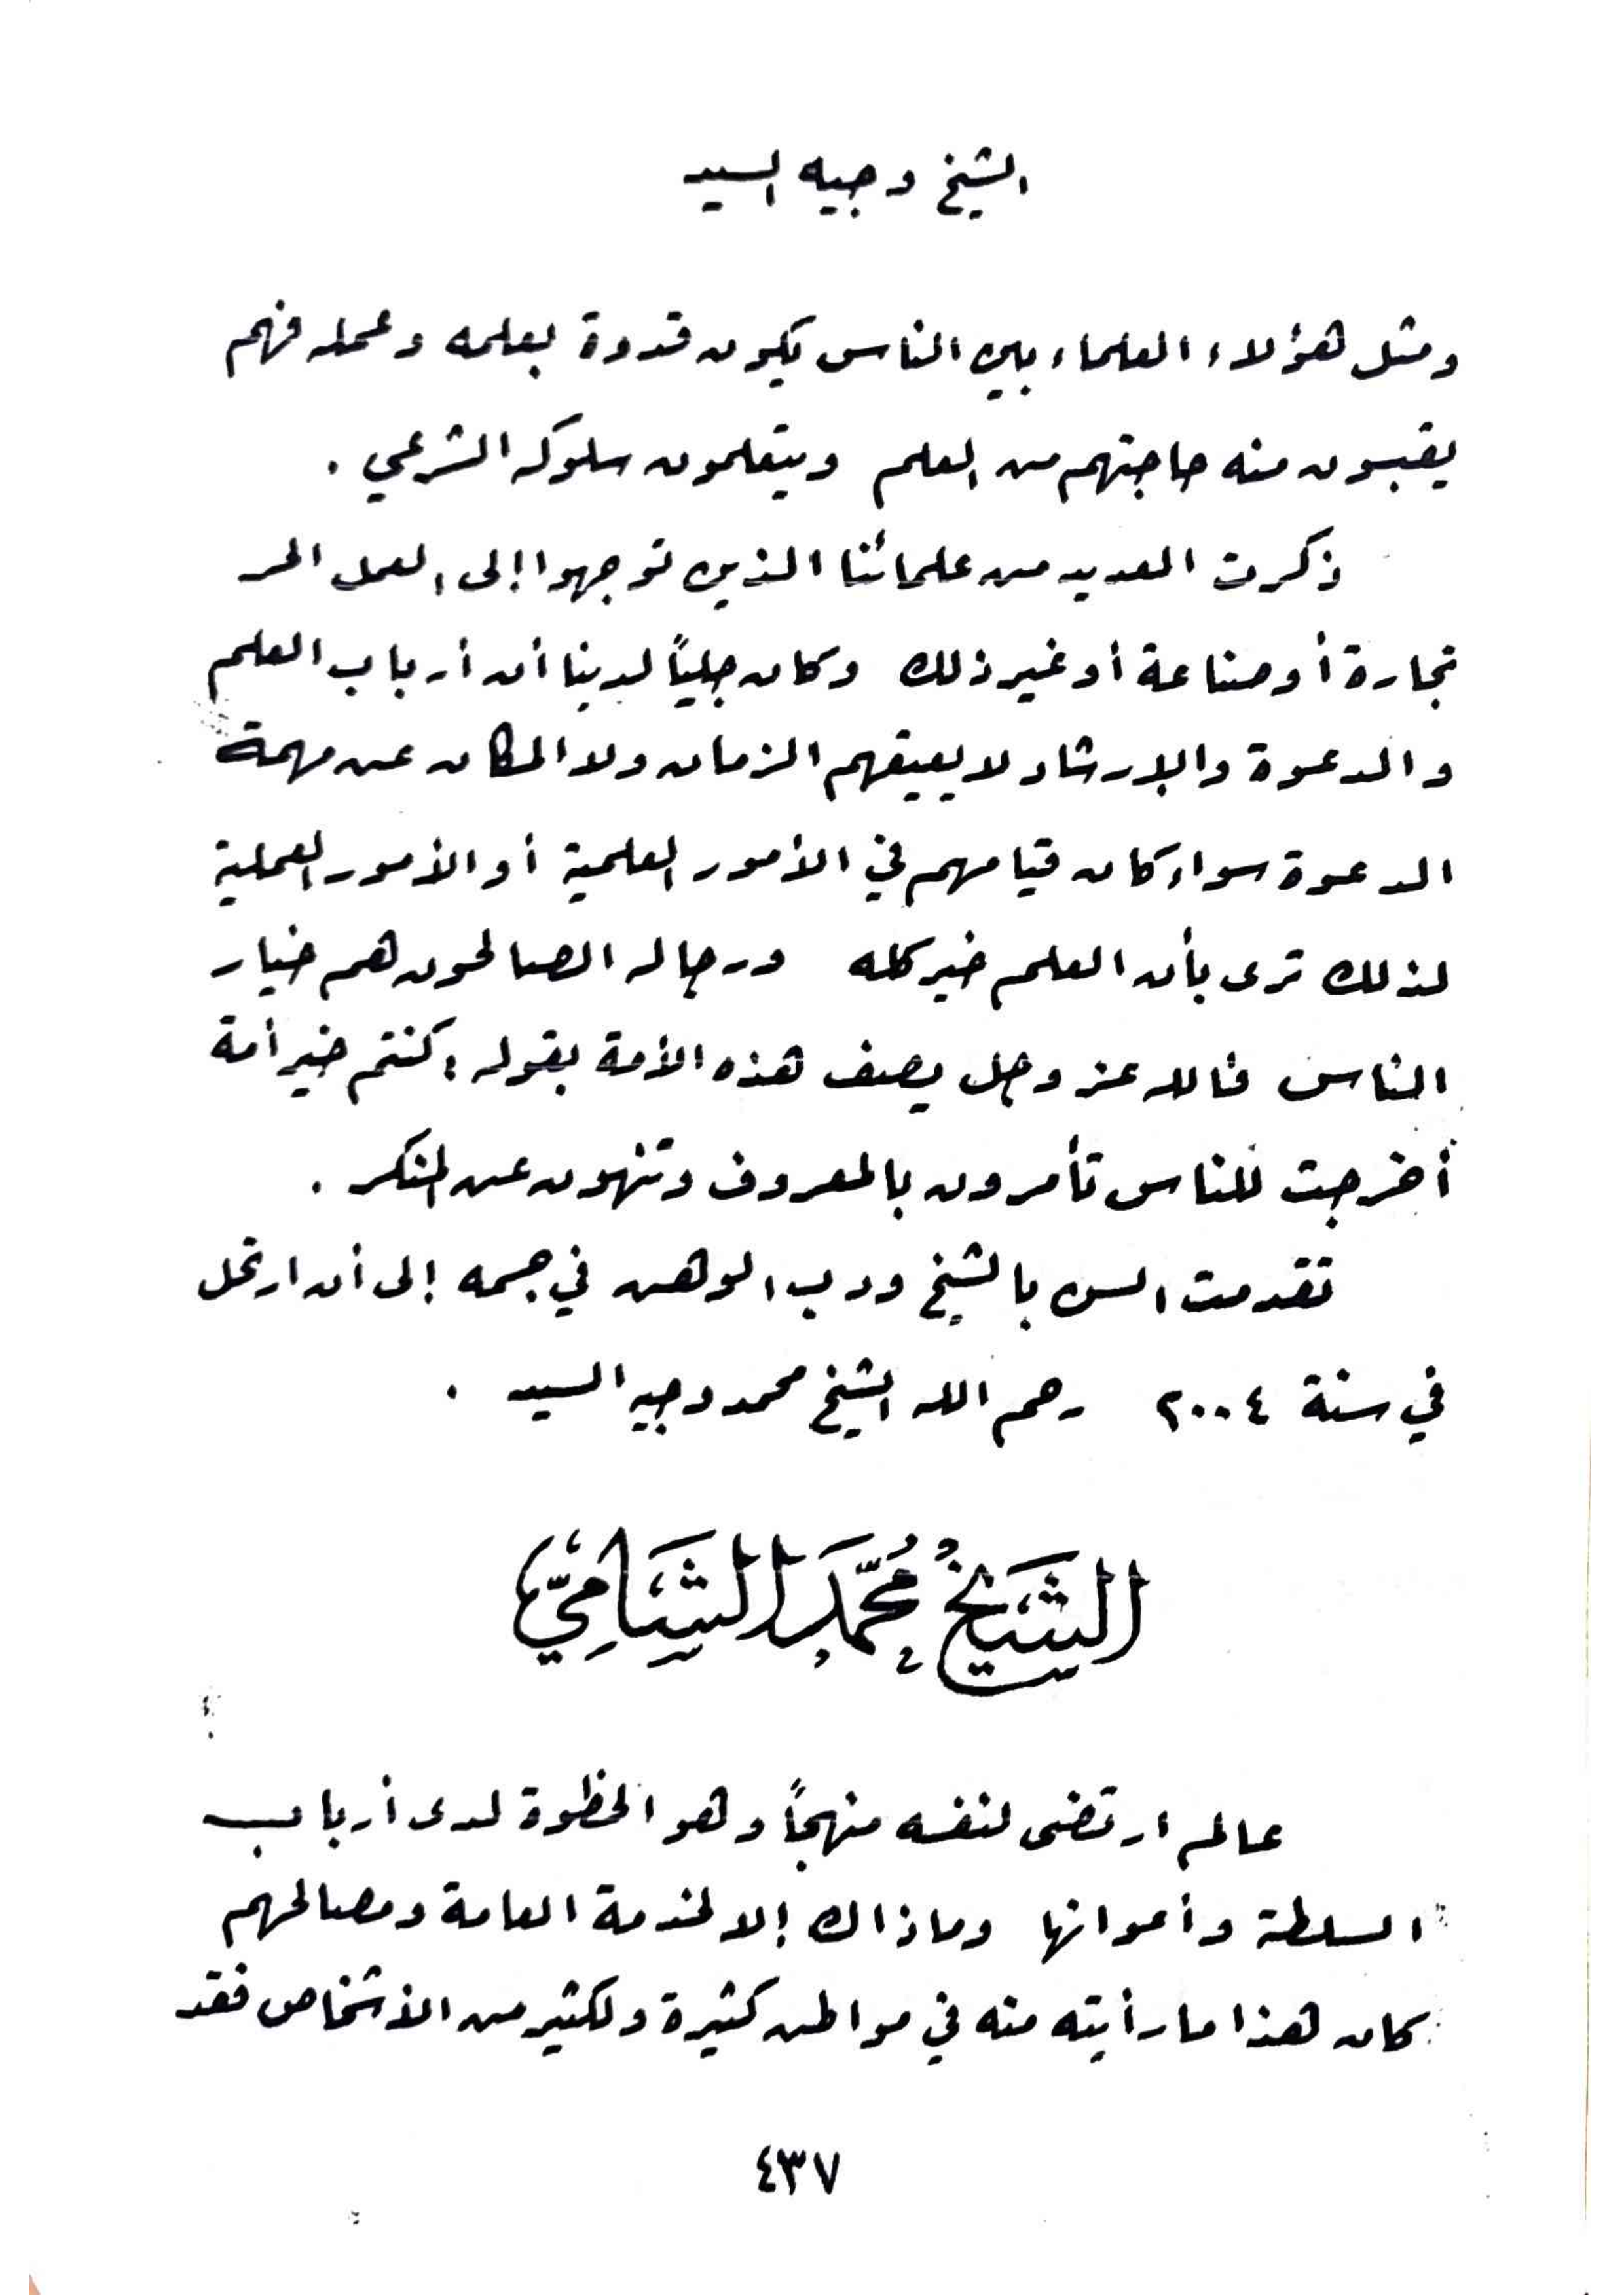 الشيخ وجيه السيد
ومثل هؤلاء العلماء بين الناس يكون قدوة بعلمه وعمله فهم
يقبسون منه حاجتهم من العلم ويتعلمون سلوكه الشرعي .
ذكرت العديد من علمائنا الذين توجهوا إلى العمل الحر
تجارة أو صناعة أو غير ذلك وكان جلياً لدينا أن أرباب العلم
والدعوة والإرشاد لا يعيقهم الزمان ولا المكان عن مهمة
الدعوة سواء كان قيامهم في الأمور العلمية أو الأمور العملية
لذلك ترى بأن العلم خير كله ورجاله الصالحون هم خيار
الناس فالله عز وجل يصف هذه الأمة بقوله : كنتم خير أمة
أخرجت للناس تأمرون بالمعروف وتنهون عن المنكر .
تقدمت السن بالشيخ ودب الوهن في جسمه إلى أن ارتحل
في سنة ٢٠٠٤ رحم الله الشيخ محمد وجيه السيد .
الشَّيخُ مُحَمَّد الشَّامِيّ
عالم ارتضى لنفسه منهجاً وهو الحظوة لدى أرباب
السلطة وأعوانها وما ذاك إلا لخدمة العامة ومصالحهم
كان هذا ما رأيته منه في مواطن كثيرة ولكثير من الأشخاص فقد
٤٣٧